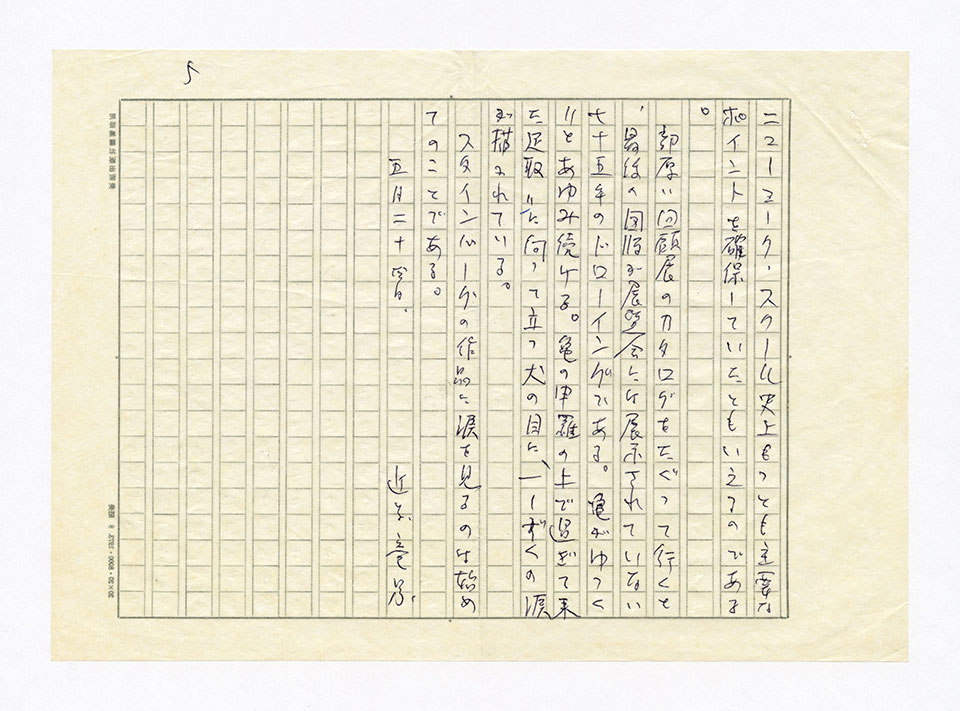 5
ニューヨーク・スクール史上もっとも主要な
ポイントを確保していたともいえるのである
。
部厚い回顧展のカタログをたぐって行くと
、最後の図版が展覧会には展示されていない
七十五年のドローイングである。亀がゆっく
りとあゆみ続ける。亀の甲羅の上で過ぎて来
た足取りに向って立つ犬の目に、一しずくの涙
が描かれている。
スタインバーグの作品に涙を見るのは始め
てのことである。
五月二十
近